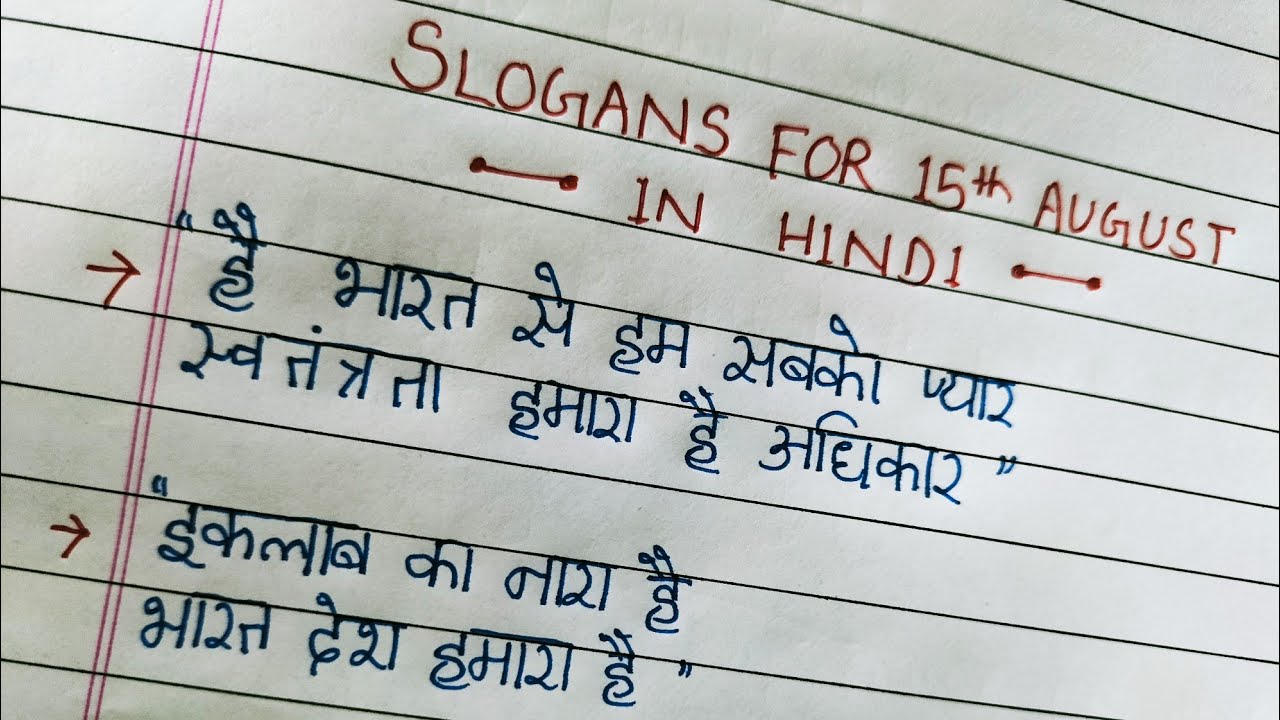 SLOGANS FOR 15th AUGUST
IN HINDI
→ "है भारत से हम सबको प्यार
स्वतंत्रता हमारा है अधिकार"
→ "इंकलाब का नारा है
भारत देश हमारा है"